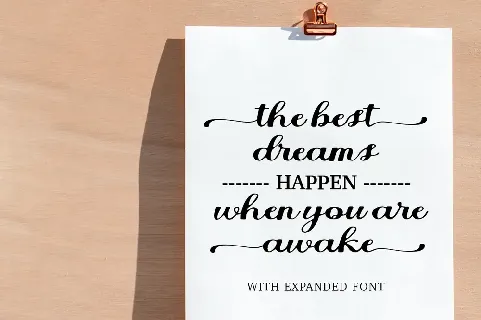 the best
dreams
------- HAPPEN -------
when you are
awake
WITH EXPANDED FONT